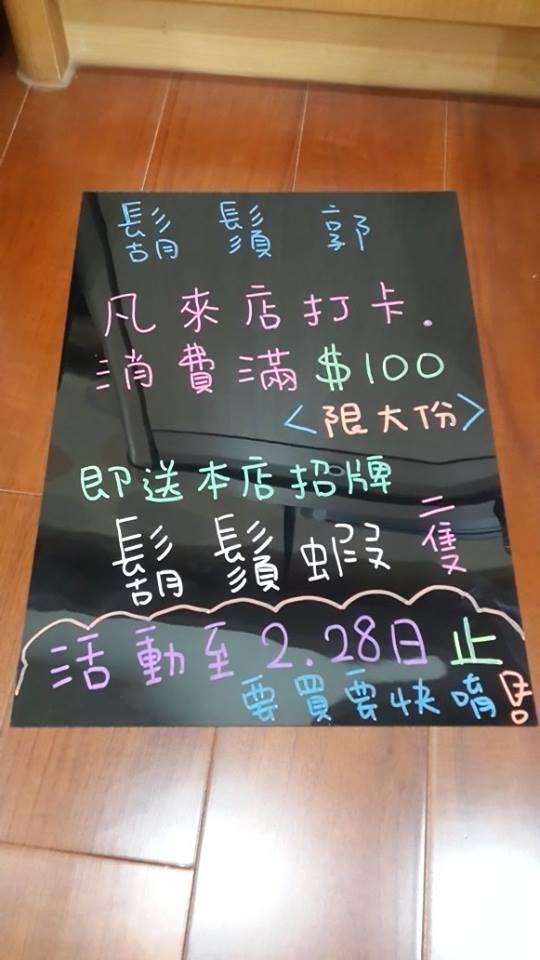 鬍鬚郭
凡來店打卡.
消費滿$100
<限大份>
即送本店招牌
鬍鬚蝦二隻
活動至2.28日止
要買要快唷